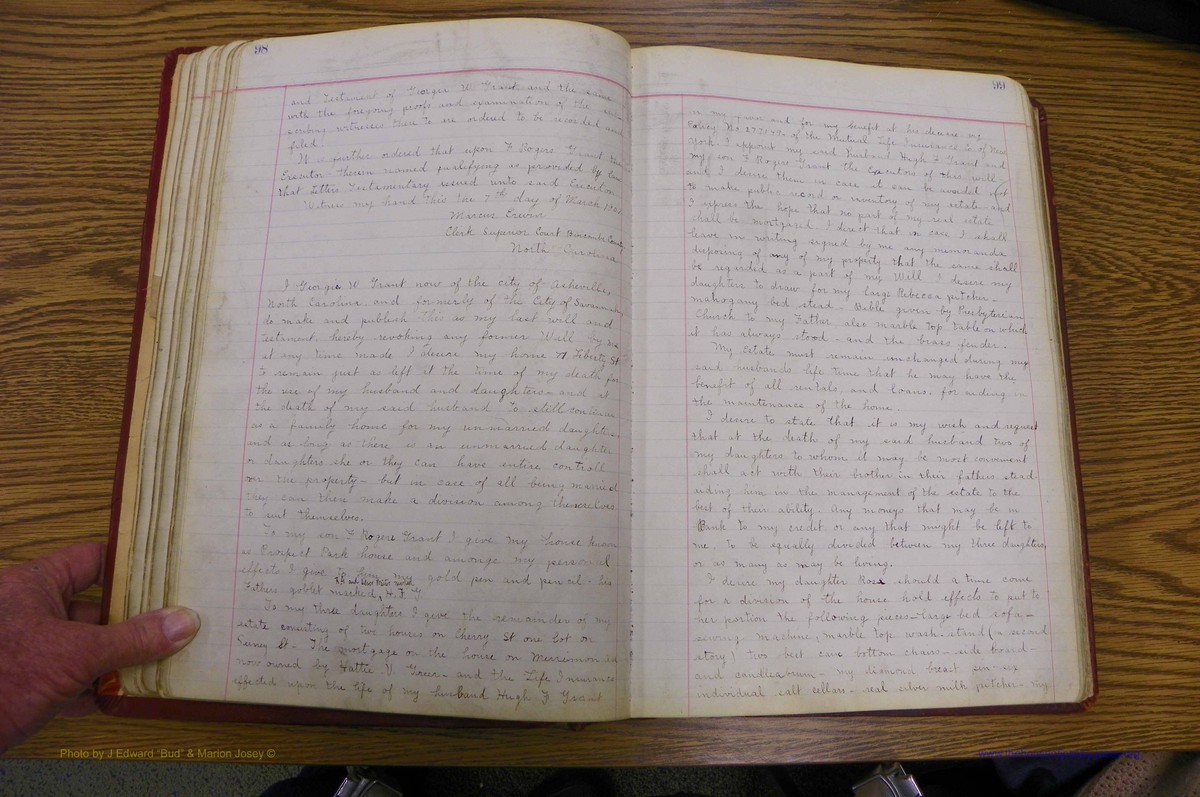 98
and Testament of Georgia W Grant and the same
with the foregoing proofs and examination of the
scribing witnesses thereto are ordered to be recorded and
filed.
It is further ordered that upon F Rogers Grant the
Executor therein named qualifying as provided by law
that Letters Testamentary issued unto said Executor
Witness my hand this the 7th day of March
Marcus Erwin
Clerk Superior Court Buncombe County
North Carolina
I Georgia W Grant now of the city of Asheville,
North Carolina, and formerly of the City of Savannah
do make and publish this as my last will and
testament hereby revoking any former Will by me
at any time made I desire my home Liberty St
to remain just as left at the time of my death for
the use of my husband and daughters and at
the death of my said husband to still continue
as a family home for my unmarried daughters
and as long as there is an unmarried daughter
or daughters she or they can have entire controll
over the property - but in case of all being married
they can there make a division among themselves
to suit themselves.
To my son F Rogers Grant I give my house known
as Prospect Park house and amonge my personal
effects I give to him my gold pen and pencil - his
Fathers goblet marked, H. F. G
To my three daughters I give the remainder of my
estate consisting of two houses on Cherry St one Lot on
St - The mortgage on the house on Merrimon
now owned by Hattie - and the Life Insurance
effected upon the life of my husband Hugh F. Grant
99
in my name and for my benefit at his decease
Policy No. of the Mutual Life Insurance Co of New
York I appoint my said Husband Hugh F Grant and
my son F Rogers Grant the Executors of this will
and I desire them in case it can be avoided not
to make public record or inventory of my estate and
I express the hope that no part of my real estate
shall be mortgaged. I direct that in case I shall
leave in writing signed by me any memoranda
disposing of any of my property that the same shall
be regarded as a part of my Will I desire my
daughters to draw for my large Rebecca pitcher -
mahogany bed stead - Bible given by Presbyterian
Church to my Father also marble top table on which
it has always stood - and the brass fender.
My Estate must remain unchanged during my
said husbands life time that he may have the
benefit of all rentals, and loans, for aiding in
the maintenance of the home.
I desire to state that it is my wish and request
that at the death of my said husband two of
my daughters to whom it may be most convenient
shall act with their brother in their fathers stead
aiding him in the management of the estate to the
best of their ability. Any moneys that may be in
Bank to my credit or any that might be left to
me to be equally divided between my three daughters
or as many as may be living.
I desire my daughter Rosa should a time come
for a division of the house hold effects to put to
her portion the following pieces - large bed sofa -
sewing machine, marble top wash stand (in second
story) two best cane bottom chairs - side board -
and - my diamond breast pin - six
individual salt cellars - real silver milk pitcher - my
Photo by J Edward "Bud" & Marion Josey ©